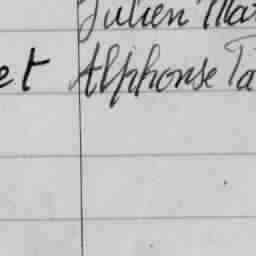 Julien Ma
et Alphonse Ta